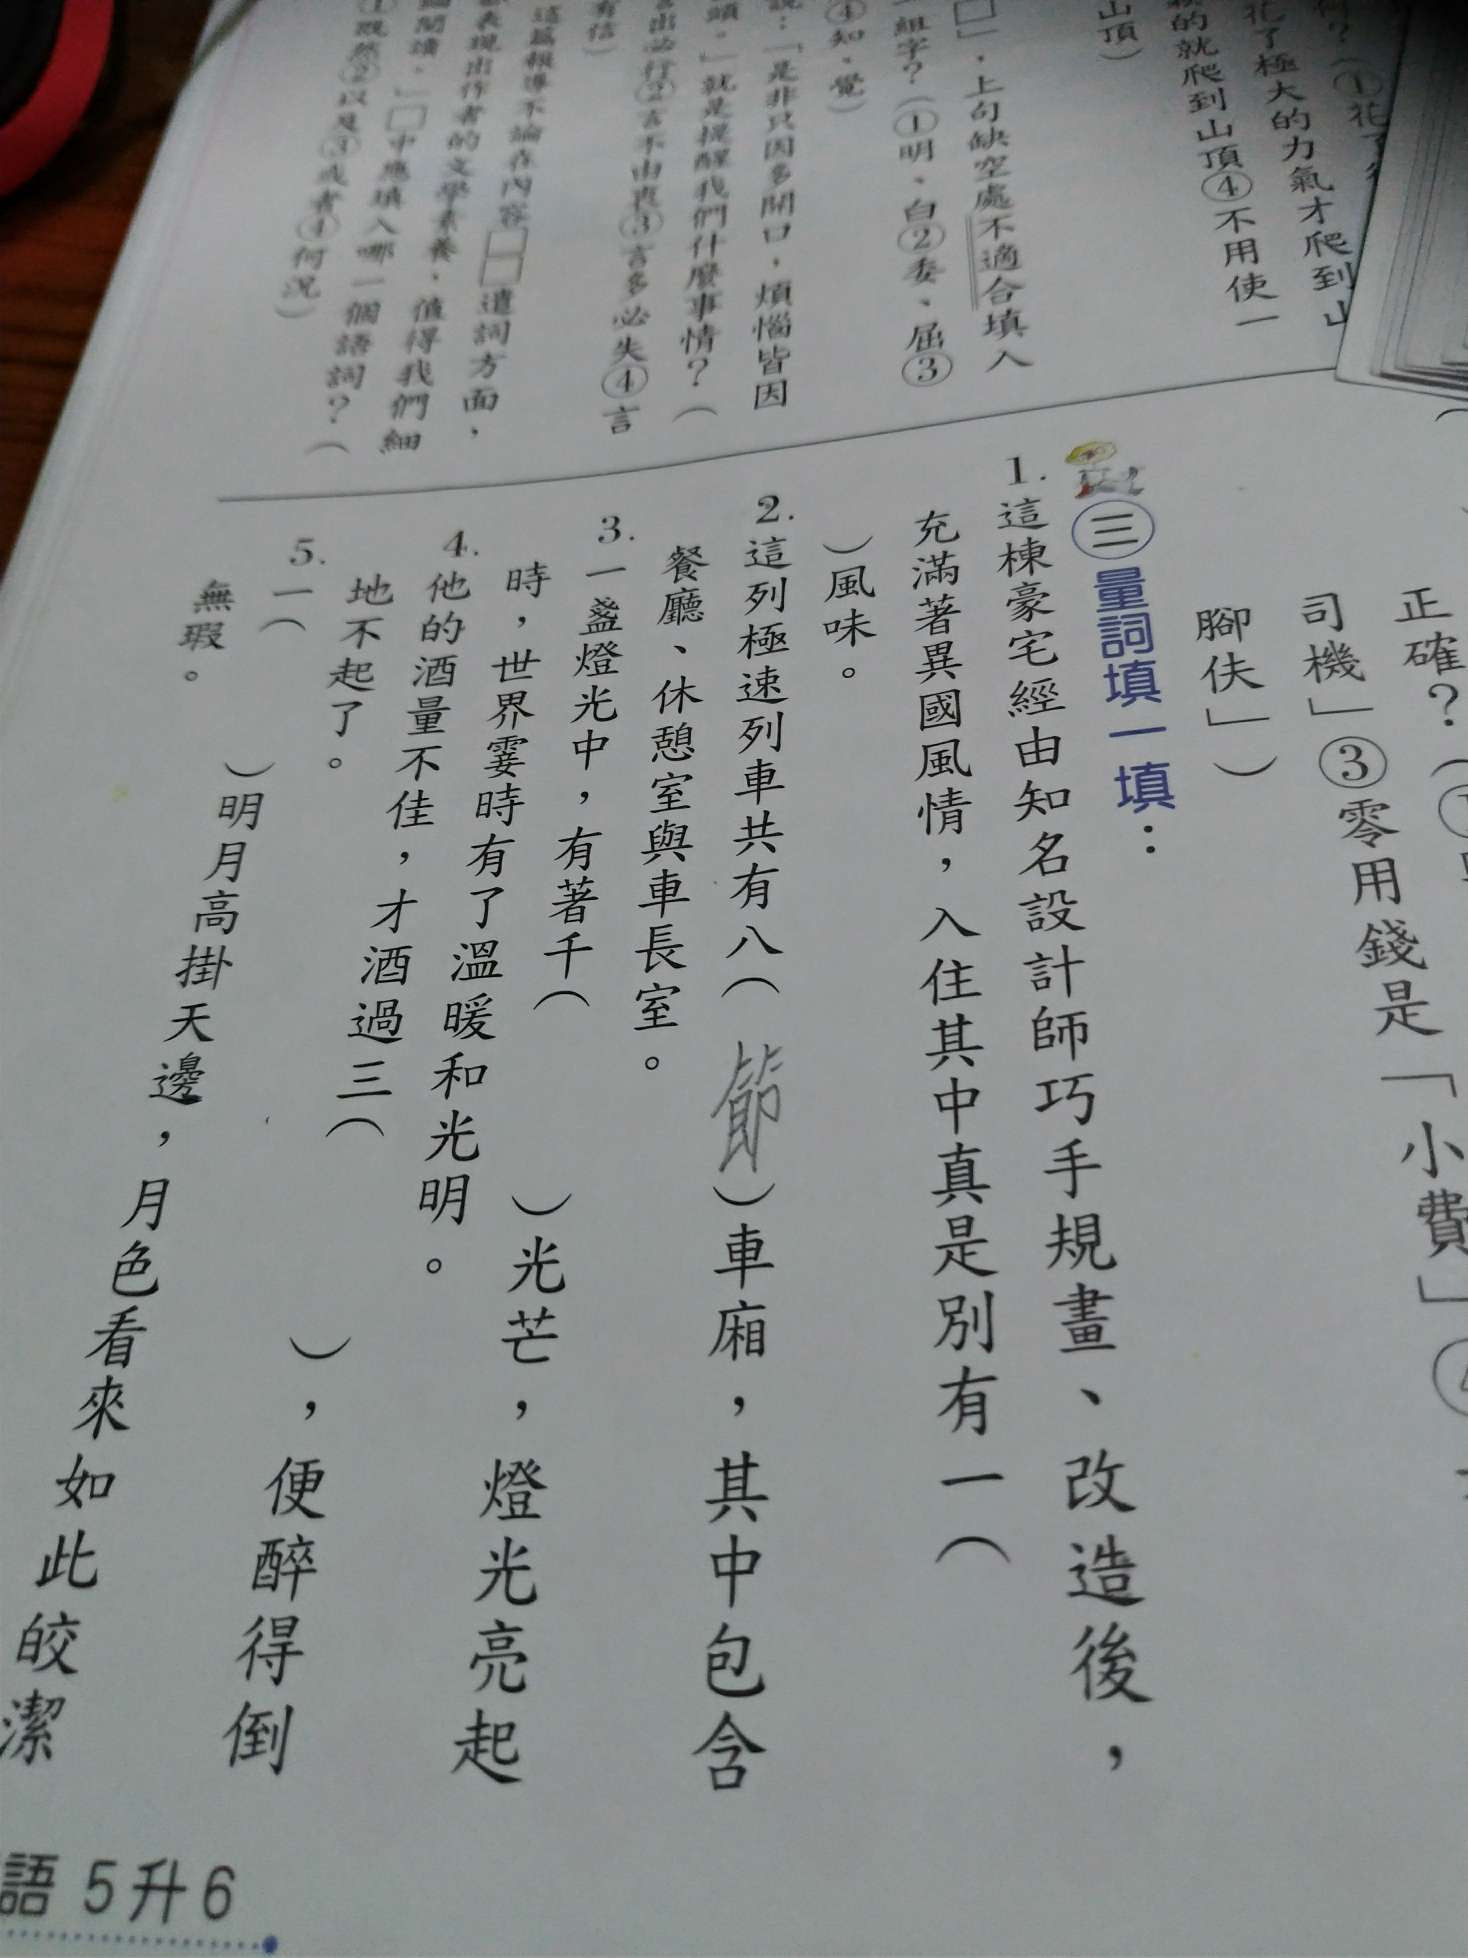 何？（①花了
花了極大的力氣才爬到山
的就爬到山頂④不用使一
山頂）
□」，上句缺空處不適合填入
一組字？（①明、白②委、屈③
④知、覺）
說：「是非只因多開口，煩惱皆因
頭。」就是提醒我們什麼事情？（
言出必行②言不由衷③言多必失④言
有信）
這篇報導不論在內容□□遣詞方面，
表現出作者的文學素養，值得我們細
細閱讀。」□中應填入哪一個語詞？（
①既然②以及③或者④何況）
正確？（
司機」③零用錢是「小費」
腳伕」）
㊂量詞填一填：
1.這棟豪宅經由知名設計師巧手規畫、改造後，
充滿著異國風情，入住其中真是別有一（
）風味。
2.這列極速列車共有八（節）車廂，其中包含
餐廳、休憩室與車長室。
3.一盞燈光中，有著千（　）光芒，燈光亮起
時，世界霎時有了溫暖和光明。
4.他的酒量不佳，才酒過三（　），便醉得倒
地不起了。
5.一（　）明月高掛天邊，月色看來如此皎潔
無瑕。
語 5升6